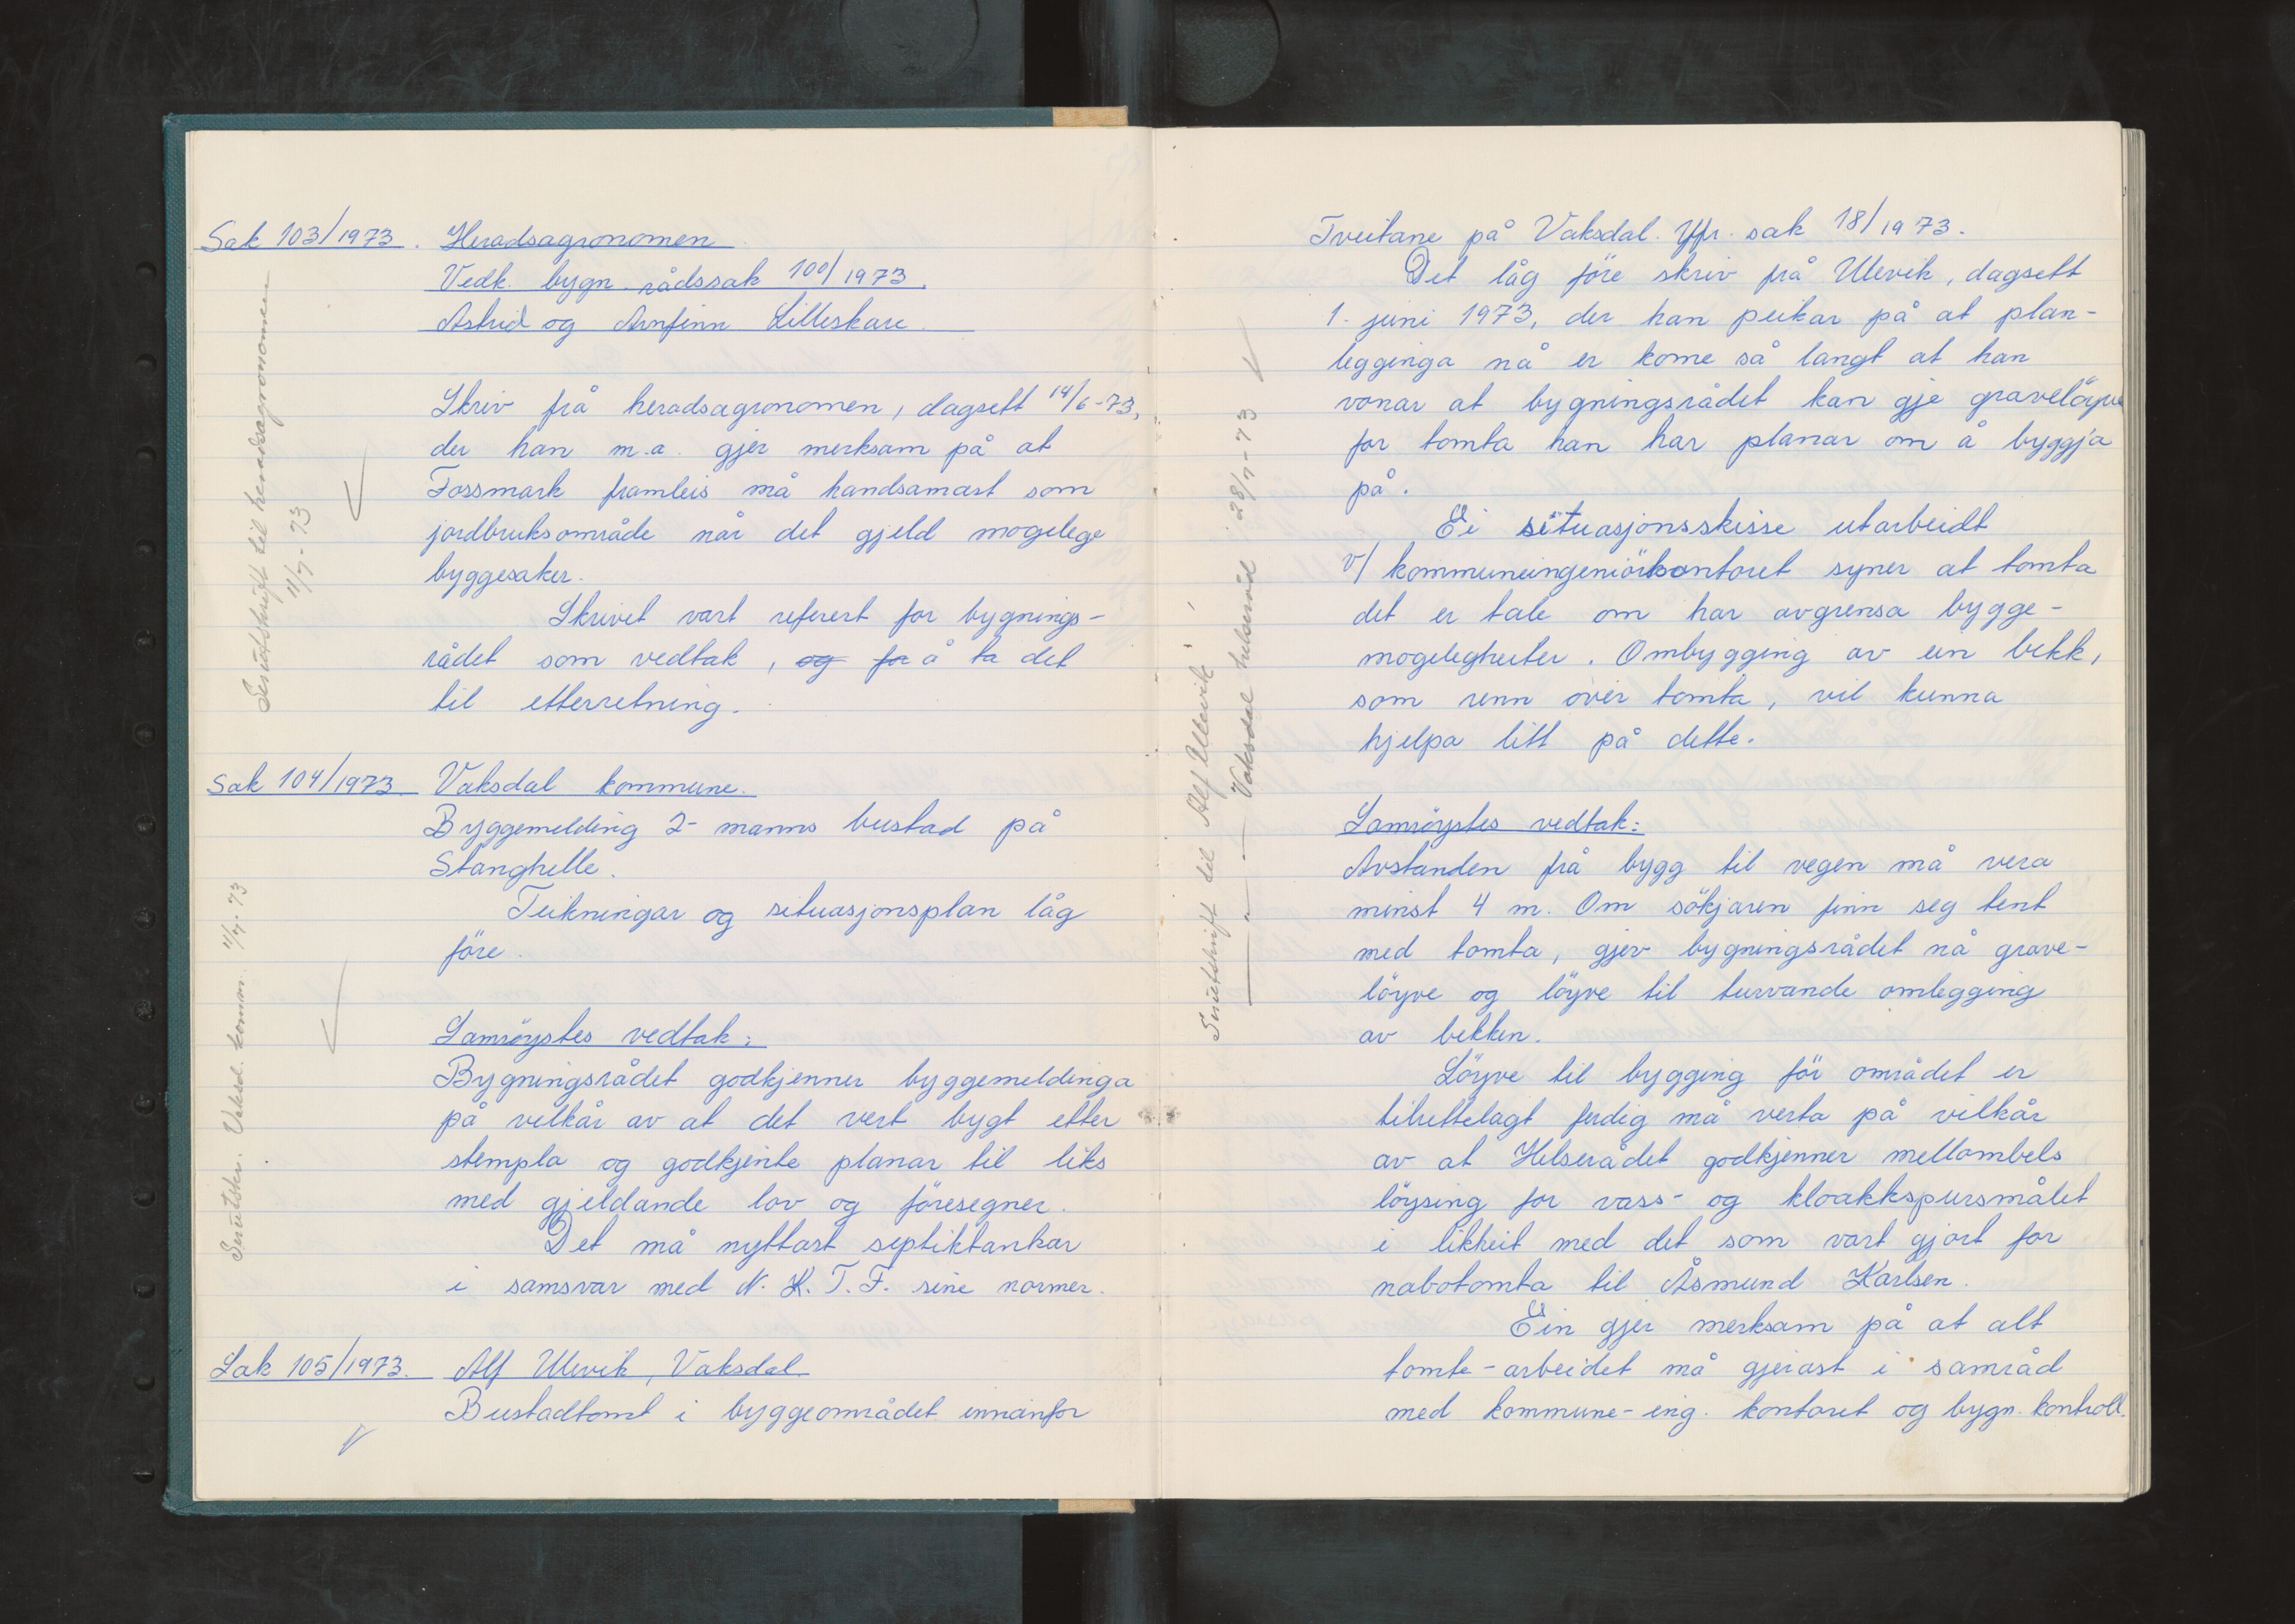 Sak 103/1973. Heradsagronomen
Vedk. bygn.rådssak 100/1973.
Astrid og Arnfinn Lilleskare.
Skriv frå heradsagronomen, dagsett 14/6-73,
der han m.a. gjer merksam på at
Fossmark framleis må handsamast som
jordbruksområde når det gjeld mogelege
byggesaker.
Skrivet vart referert for bygnings-
rådet som vedtak, og for å ta det
til etterretning.
Serutskrift til heradsagronomen
11/7-73
Sak 104/1973 Vaksdal kommune.
Byggemelding 2-manns bustad på
Stanghelle.
Teikningar og situasjonsplan låg
före.
Samröystes vedtak:
Bygningsrådet godkjenner byggemeldinga
på velkår av at det vert bygt etter
stempla og godkjente planar til liks
med gjeldande lov og föresegner.
Det må nyttast septiktankar
i samsvar med N.K.T.F. sine normer.
Serutskr. Vaksd. komm. 11/7-73
Sak 105/1973. Alf Ulevik, Vaksdal.
Bustadtomt i byggeområdet innanfor
Tveitane på Vaksdal. Jfr. sak 18/1973.
Det låg före skriv frå Ulevik, dagsett
1. juni 1973, der han peikar på at plan-
legginga nå er kome så langt at han
vonar at bygningsrådet kan gje gravelöyve
for tomta han har planar om å byggja
på.
Ei situasjonsskisse utarbeidt
v/ kommuneingeniörkontoret syner at tomta
det er tale om har avgrensa bygge-
mogelegheiter. Ombygging av ein bekk,
som renn over tomta, vil kunna
hjelpa litt på dette.
Samröystes vedtak:
Avstanden frå bygg til vegen må vera
minst 4 m. Om sökjaren finn seg tent
med tomta, gjev bygningsrådet nå grave-
löyve og löyve til turvande omlegging
av bekken.
Löyve til bygging för området er
tilrettelagt ferdig må verta på vilkår
av at Helserådet godkjenner mellombels
löysing for vass- og kloakkspursmålet
i likheit med det som vart gjort for
nabotomta til Åsmund Karlsen.
Ein gjer merksam på at alt
tomte-arbeidet må gjerast i samråd
med kommune-ing. kontoret og bygn.kontroll.
Serutskrift til Alf Ulevik
— " — Vaksdal helseråd 28/7-73